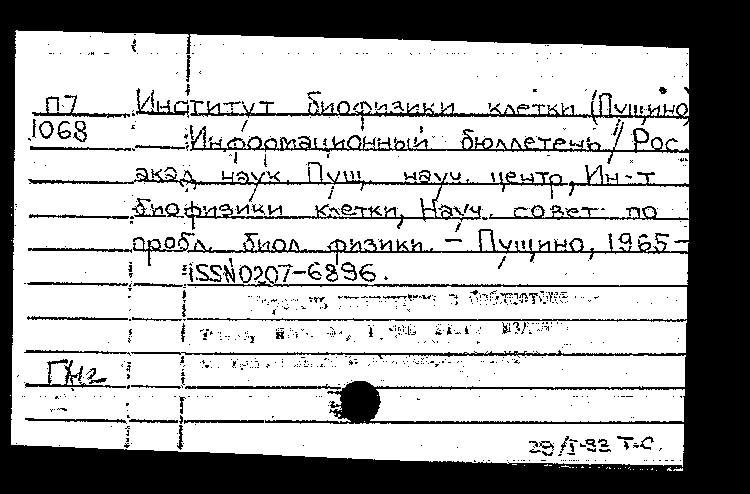 П7 Институт биофизики клетки (Пущино)
1068 Информационный бюллетень // Рос.
акад. наук. Пущ. науч. центр, Ин-т
биофизики клетки, Науч. совет по
пробл. биол. физики. – Пущино, 1965–
ISSN0207-6896.
в библиотеке
29/I-92 Т.С.